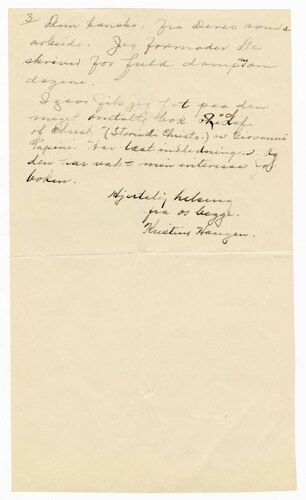 3 Dem kanske. Fra Deres aands
arbeide. Jeg formoder De
skriver for fuld damp om
dagene.
I gaar fik jeg fat paa den
meget omtalte bok "The Life
of Christ" (Storia di Christo.) av Giovanni
Papini. Har læst indledningen. Og
den har vakt min interesse for
boken.
Hjertelig helsing
fra os begge.
Kristine Haugen.